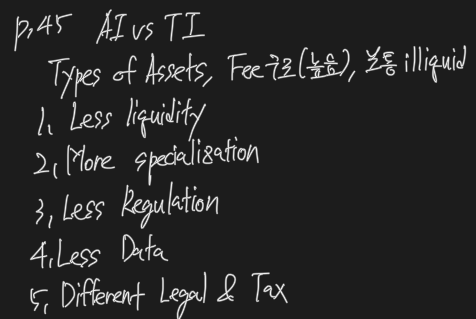 p.45 AI vs TI
Types of Assets, Fee구조(높음), 보통 illiquid
1, Less liquidity
2, More specialisation
3, Less Regulation
4, Less Data
5, Different Legal & Tax